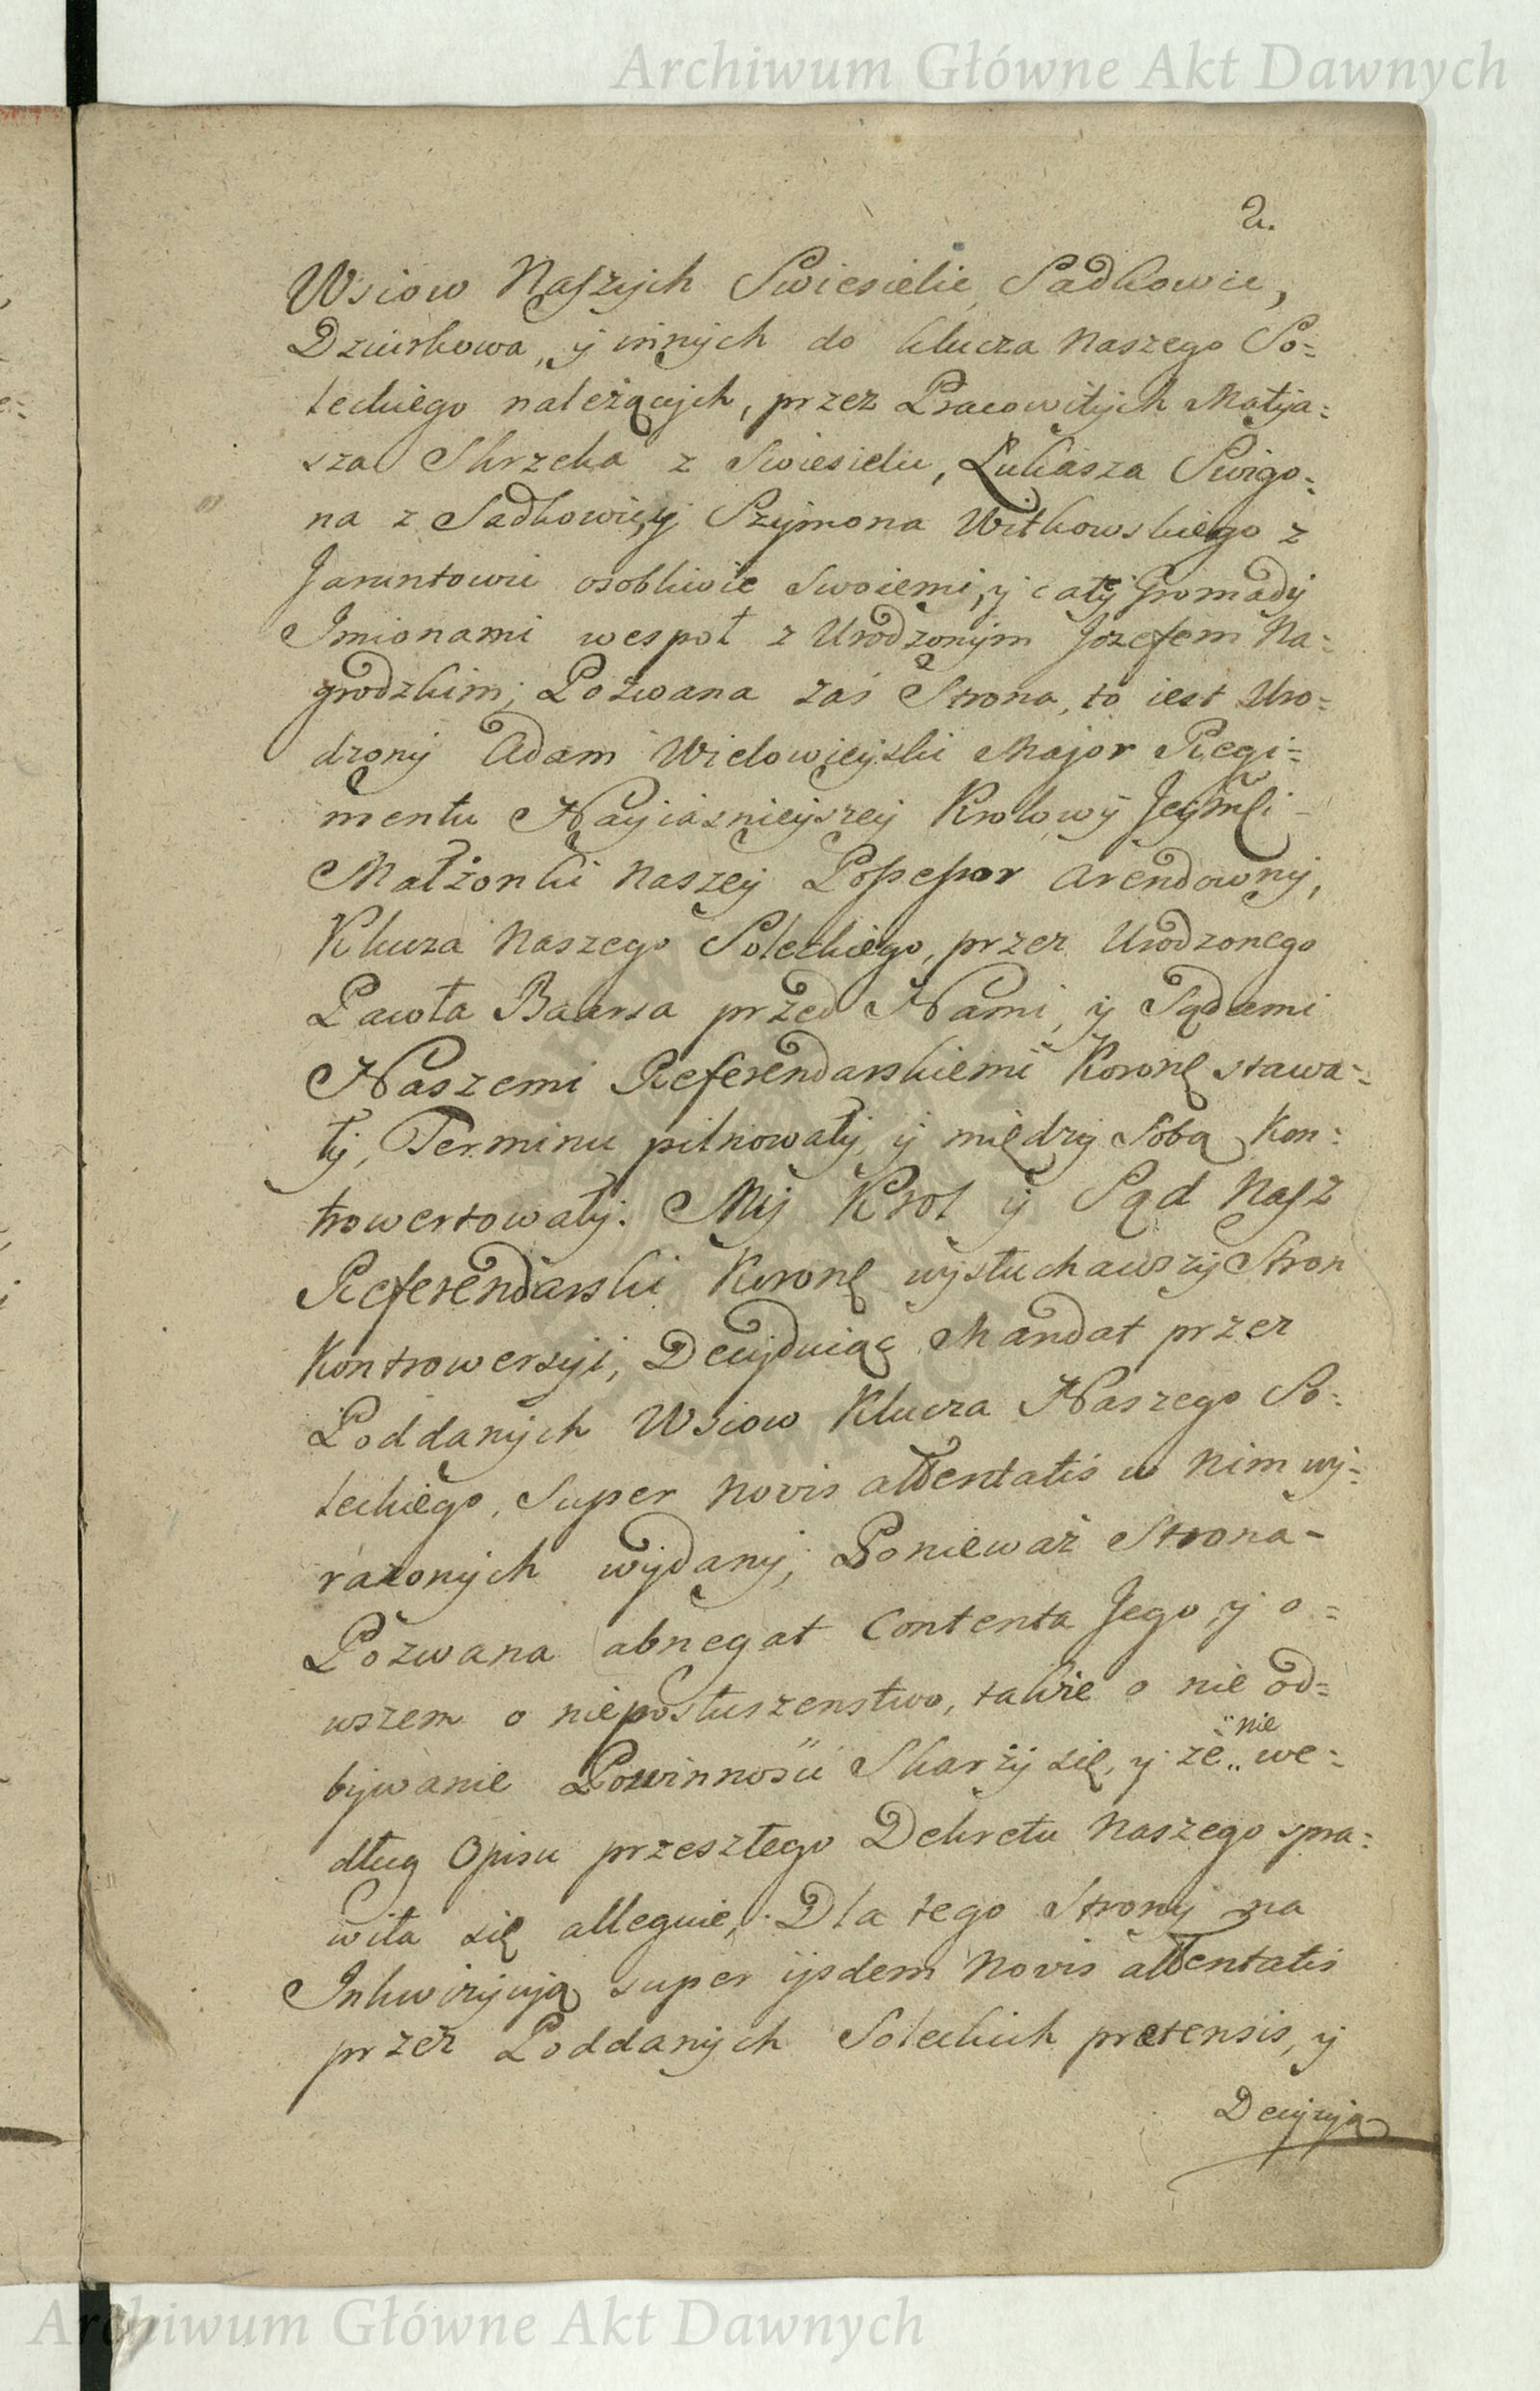 Archiwum Główne Akt Dawnych
2.
Wsiow Naszych Swiesielic, Sadkowic,
Dziurkowa, y innych do klucza Naszego So=
leckiego należących, przez Pracowitych Matya=
sza Skrzeka z Swiesielic, Łukasza Swigo=
na z Sadkowic, y Szymona Witkowskiego z
Jarentowic osobliwie swoiemi, y całey Gromady
Imionami wespoł z Urodzonym Jozefem Na=
grodzkim; Pozwana zaś Strona, to iest Uro=
dzony Adam Wielowieyski Major Regi=
mentu Nayiasnieyszey Krolowy Jeymści
Małżonki Naszey Possessor Arendowny,
Klucza Naszego Soleckiego, przez Urodzonego
Pawła Baarsa przed Nami, y Sądami
Naszemi Referendarskiemi Koronę stawa=
ły, Terminu pilnowały, y między Sobą Kon=
trowertowały. My Krol y Sąd Nasz
Referendarski Koronę wysłuchawszy Stron
Kontrowersyi, Decyduiąc Mandat przez
Poddanych Wsiow Klucza Naszego So=
leckiego, Super novis attentatis w Nim wy=
rażonych wydany; Ponieważ Strona-
Pozwana abnegat Contenta Jego, y o=
wszem o nieposłuszenstwo, także o nie od=
bywanie Powinnosci Skarży się, y że nie we=
dług Opisu przeszłego Dekretu Naszego spra=
wiła się alleguie; Dla tego Strony na
Inkwizycyją super ijsdem Novis attentatis
przez Poddanych Soleckich pretensis, y
Decyzyją
Archiwum Główne Akt Dawnych